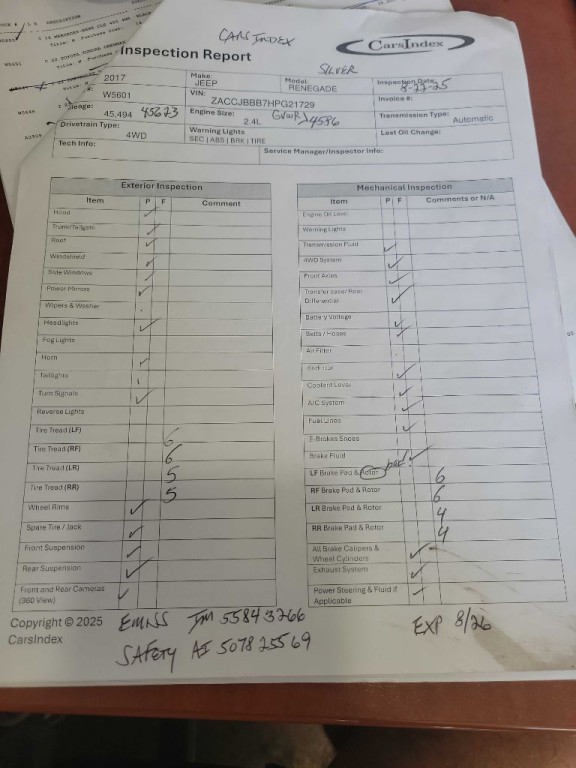 CARSINDEX
CarsIndex
Inspection Report
SILVER
2017 Make: JEEP Model: RENEGADE Inspection Date:
W5601 VIN: ZACCJBBB7HPG21729 Invoice #:
45,494 45623 Engine Size: 2.4L GVWR 4586 Transmission Type: Automatic
Drivetrain Type: 4WD Warning Lights SEC | ABS | BRK | TIRE Last Oil Change:
Tech Info: Service Manager/Inspector Info:
Exterior Inspection
Item P F Comment
Hood ✓
Trunk/Tailgate ✓
Roof ✓
Windshield ✓
Side Windows ✓
Power Mirrors ✓
Wipers & Washer
Headlights ✓
Fog Lights
Horn ✓
Taillights
Turn Signals ✓
Reverse Lights
Tire Tread (LF) 6
Tire Tread (RF) 6
Tire Tread (LR) 5
Tire Tread (RR) 5
Wheel Rims ✓
Spare Tire / Jack ✓
Front Suspension ✓
Rear Suspension ✓
Front and Rear Cameras
(360 View) ✓
Mechanical Inspection
Item P F Comments or N/A
Engine Oil Level
Warning Lights
Transmission Fluid ✓
4WD System ✓
Front Axles ✓
Transfer case/ Rear
Differential ✓
Battery Voltage
Belts / Hoses ✓
Air Filter
✓
Coolant Level ✓
A/C System ✓
Fuel Lines ✓
E-Brakes Shoes
Brake Fluid ✓
LF Brake Pad & Rotor bad! 6
RF Brake Pad & Rotor 6
LR Brake Pad & Rotor 4
RR Brake Pad & Rotor 4
All Brake Calipers &
Wheel Cylinders ✓
Exhaust System ✓
Power Steering & Fluid if
Applicable ✓
Copyright © 2025
CarsIndex
EMISS IM 55843266
SAFETY AI 507825569
EXP 8/26